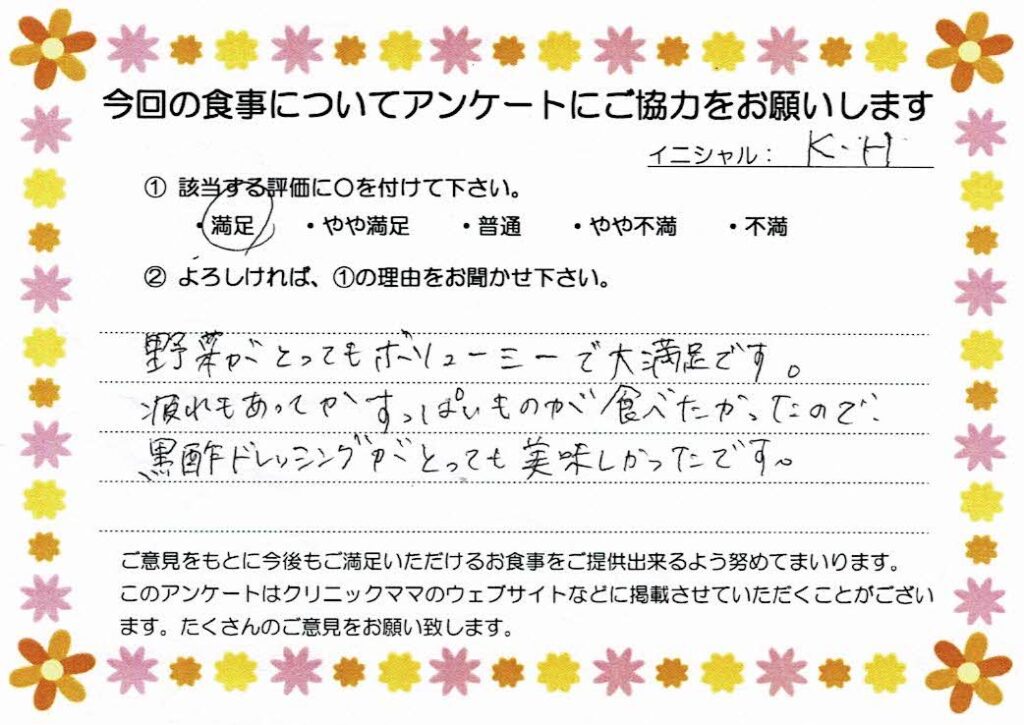 今回の食事についてアンケートにご協力をお願いします
イニシャル： K・H
① 該当する評価に〇を付けて下さい。
・満足 ・やや満足 ・普通 ・やや不満 ・不満
② よろしければ、①の理由をお聞かせ下さい。
野菜がとってもボリューミーで大満足です。
疲れもあってかすっぱいものが食べたかったので、
黒酢ドレッシングがとっても美味しかったです。
ご意見をもとに今後もご満足いただけるお食事をご提供出来るよう努めてまいります。
このアンケートはクリニックママのウェブサイトなどに掲載させていただくことがござい
ます。たくさんのご意見をお願い致します。